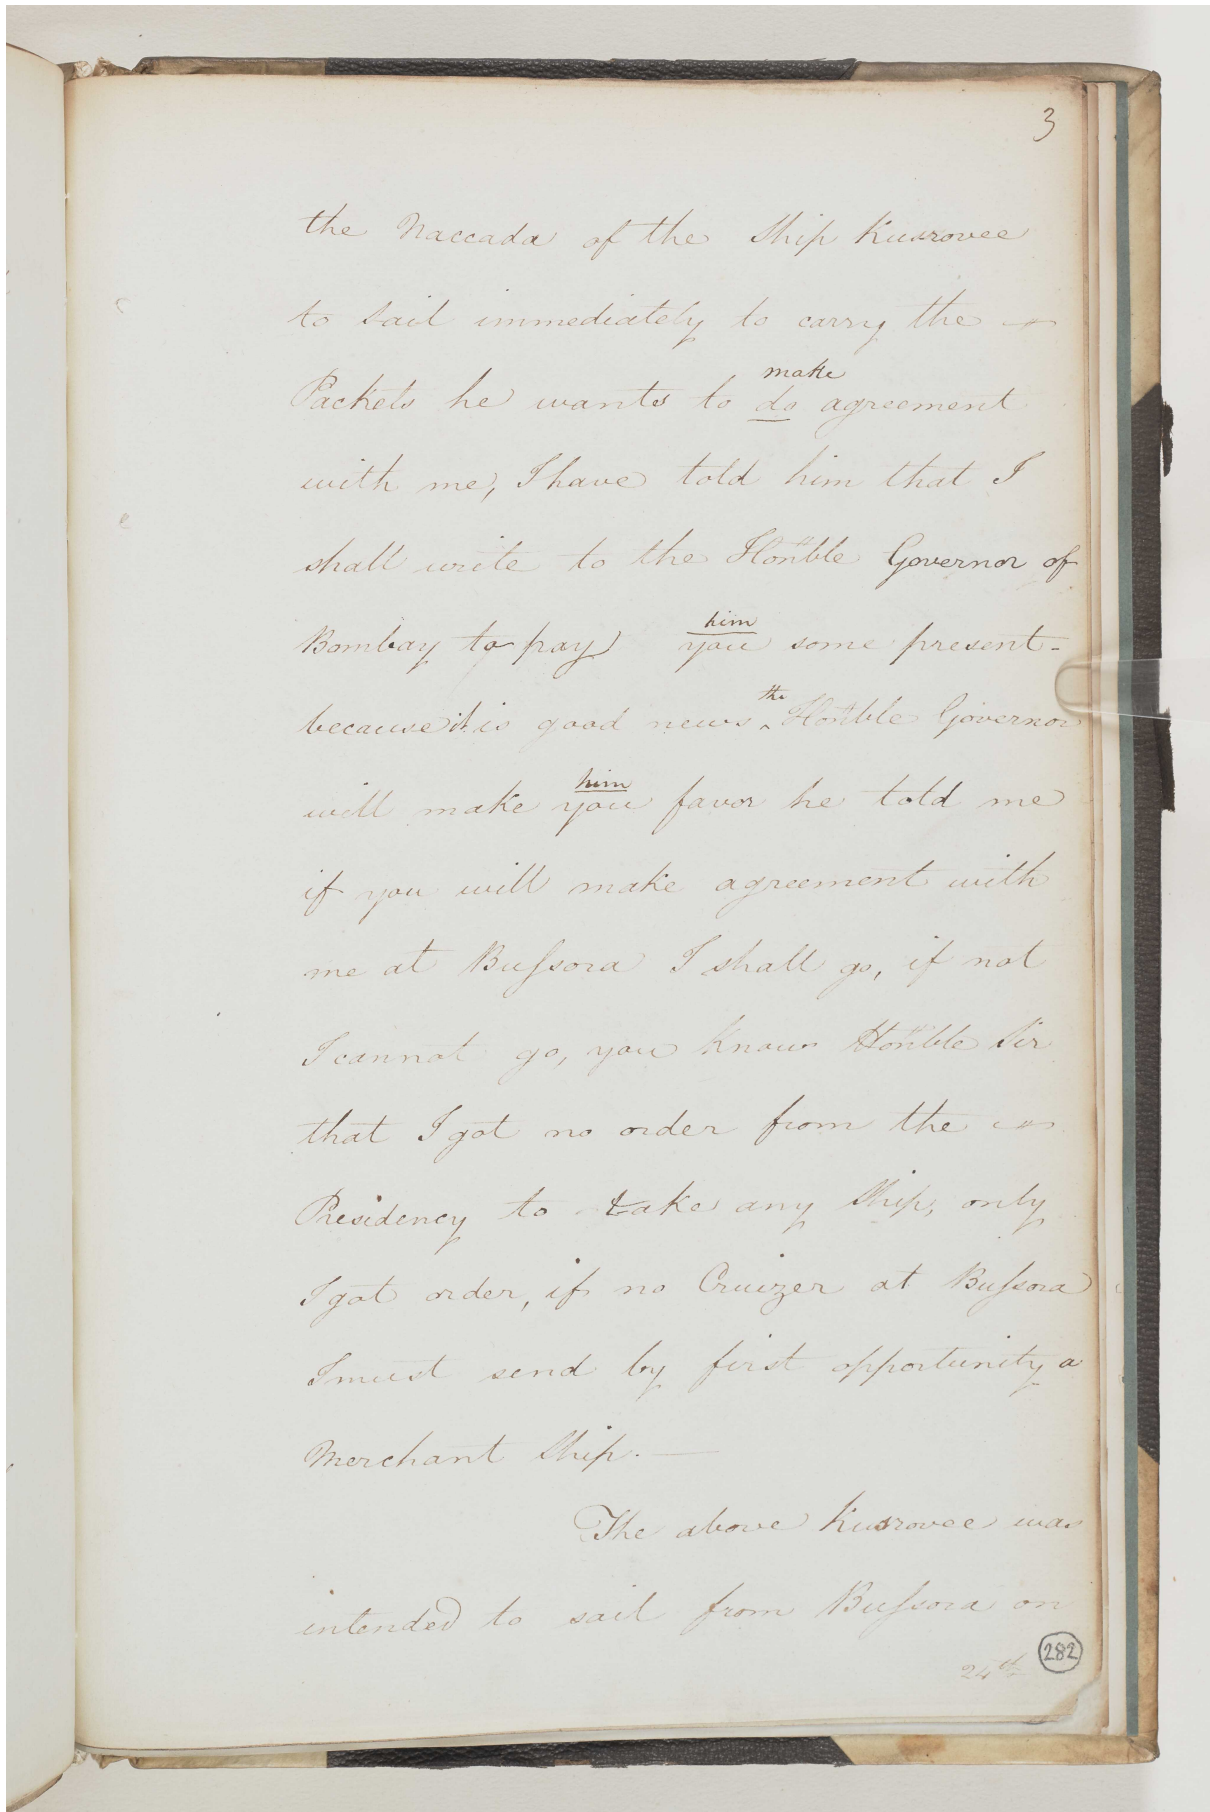 3
the Naccada of the Ship Kusrovee
to sail immediately to carry the
make
Packets he wants to do agreement
with me, I have told him that I
shall write to the Honble Governor of
him
Bombay to pay you some present-
the
because it is good news ^ Honble Governor
him
will make you favor he told me
if you will make agreement with
me at Bussora I shall go, if not
I cannot go, you know Honble Sir
that I got no order from the
Presidency to take any Ship, only
I got order, if no Cruizer at Bussora
I must send by first opportunity a
Merchant Ship. —
The above Kusrovee was
intended to sail from Bussora on
24th
282